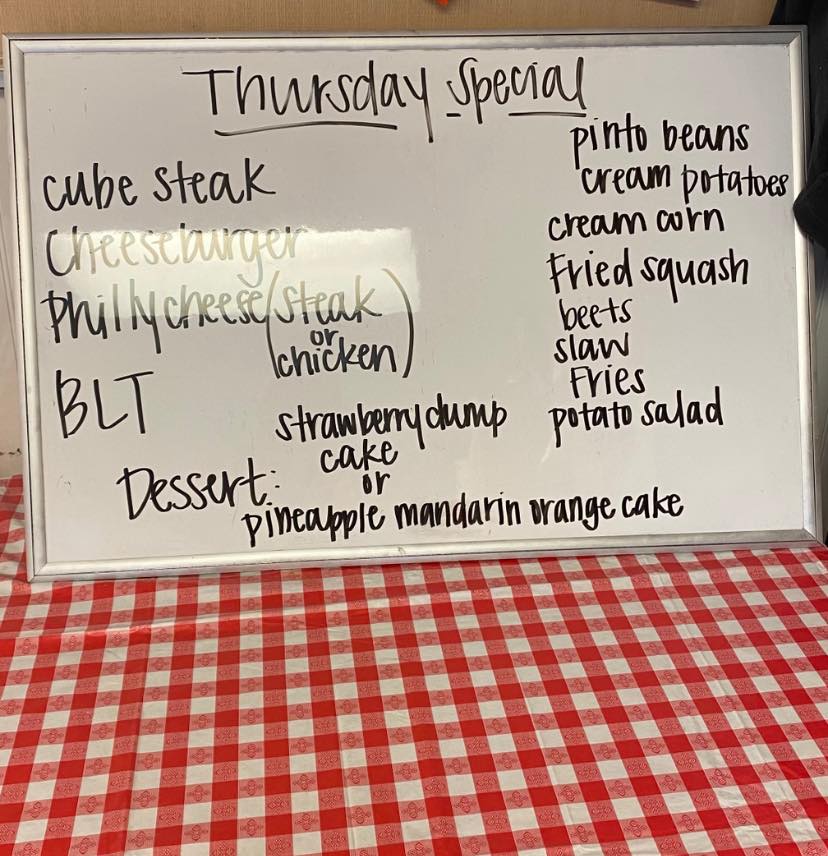 Thursday Special
cube steak
Cheeseburger
Philly cheese (steak
or
chicken)
BLT
pinto beans
cream potatoes
cream corn
Fried squash
beets
slaw
Fries
potato salad
Dessert: strawberry dump
cake
or
pineapple mandarin orange cake